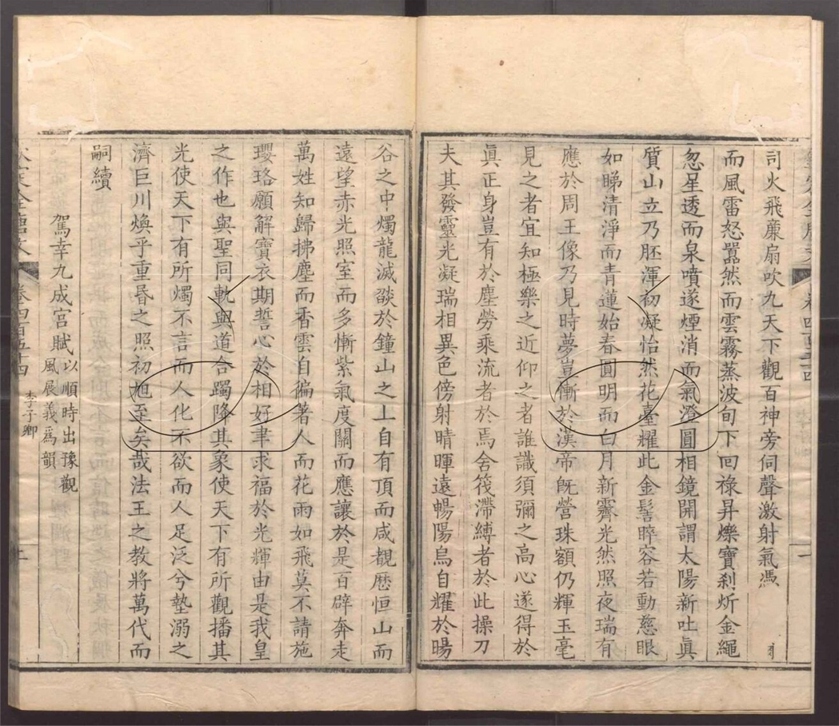 司火飛廉扇吹九天下觀百神旁伺聲激射氣憑
而風雷怒囂然而雲霧蒸波旬下回祿昇爍寶刹炘金繩
忽星透而泉噴遂煙消而氣澄圓相鏡開謂太陽新吐真
質山立乃胚渾初凝怡然花臺耀此金髻睟容若動慈眼
如睇清淨而青蓮始春圓明而白月新霽光然照夜瑞有
應於周王像乃見時夢豈慚於漢帝既營珠額仍輝玉毫
見之者宜知極樂之近仰之者誰識須彌之高心遂得於
真正身豈有於塵勞乘流者於焉舍筏滯縛者於此操刀
夫其發靈光凝瑞相異色傍射晴暉遠暢陽烏自耀於暘
谷之中燭龍滅燄於鐘山之上自有頂而咸覩歷恒山而
遠望赤光照室而多慚紫氣度關而應讓於是百辟奔走
萬姓知歸拂塵而香雲自徧著人而花雨如飛莫不請施
瓔珞願解寶衣期誓心於相好聿求福於光輝由是我皇
之作也與聖同軌與道合躅降其象使天下有所觀播其
光使天下有所燭不言而人化不欲而人足泛兮墊溺之
濟巨川煥乎重昬之照初旭至矣哉法王之教將萬代而
嗣續
駕幸九成宮賦以順時出豫觀
風展義爲韻
李子卿
卷四百五十四